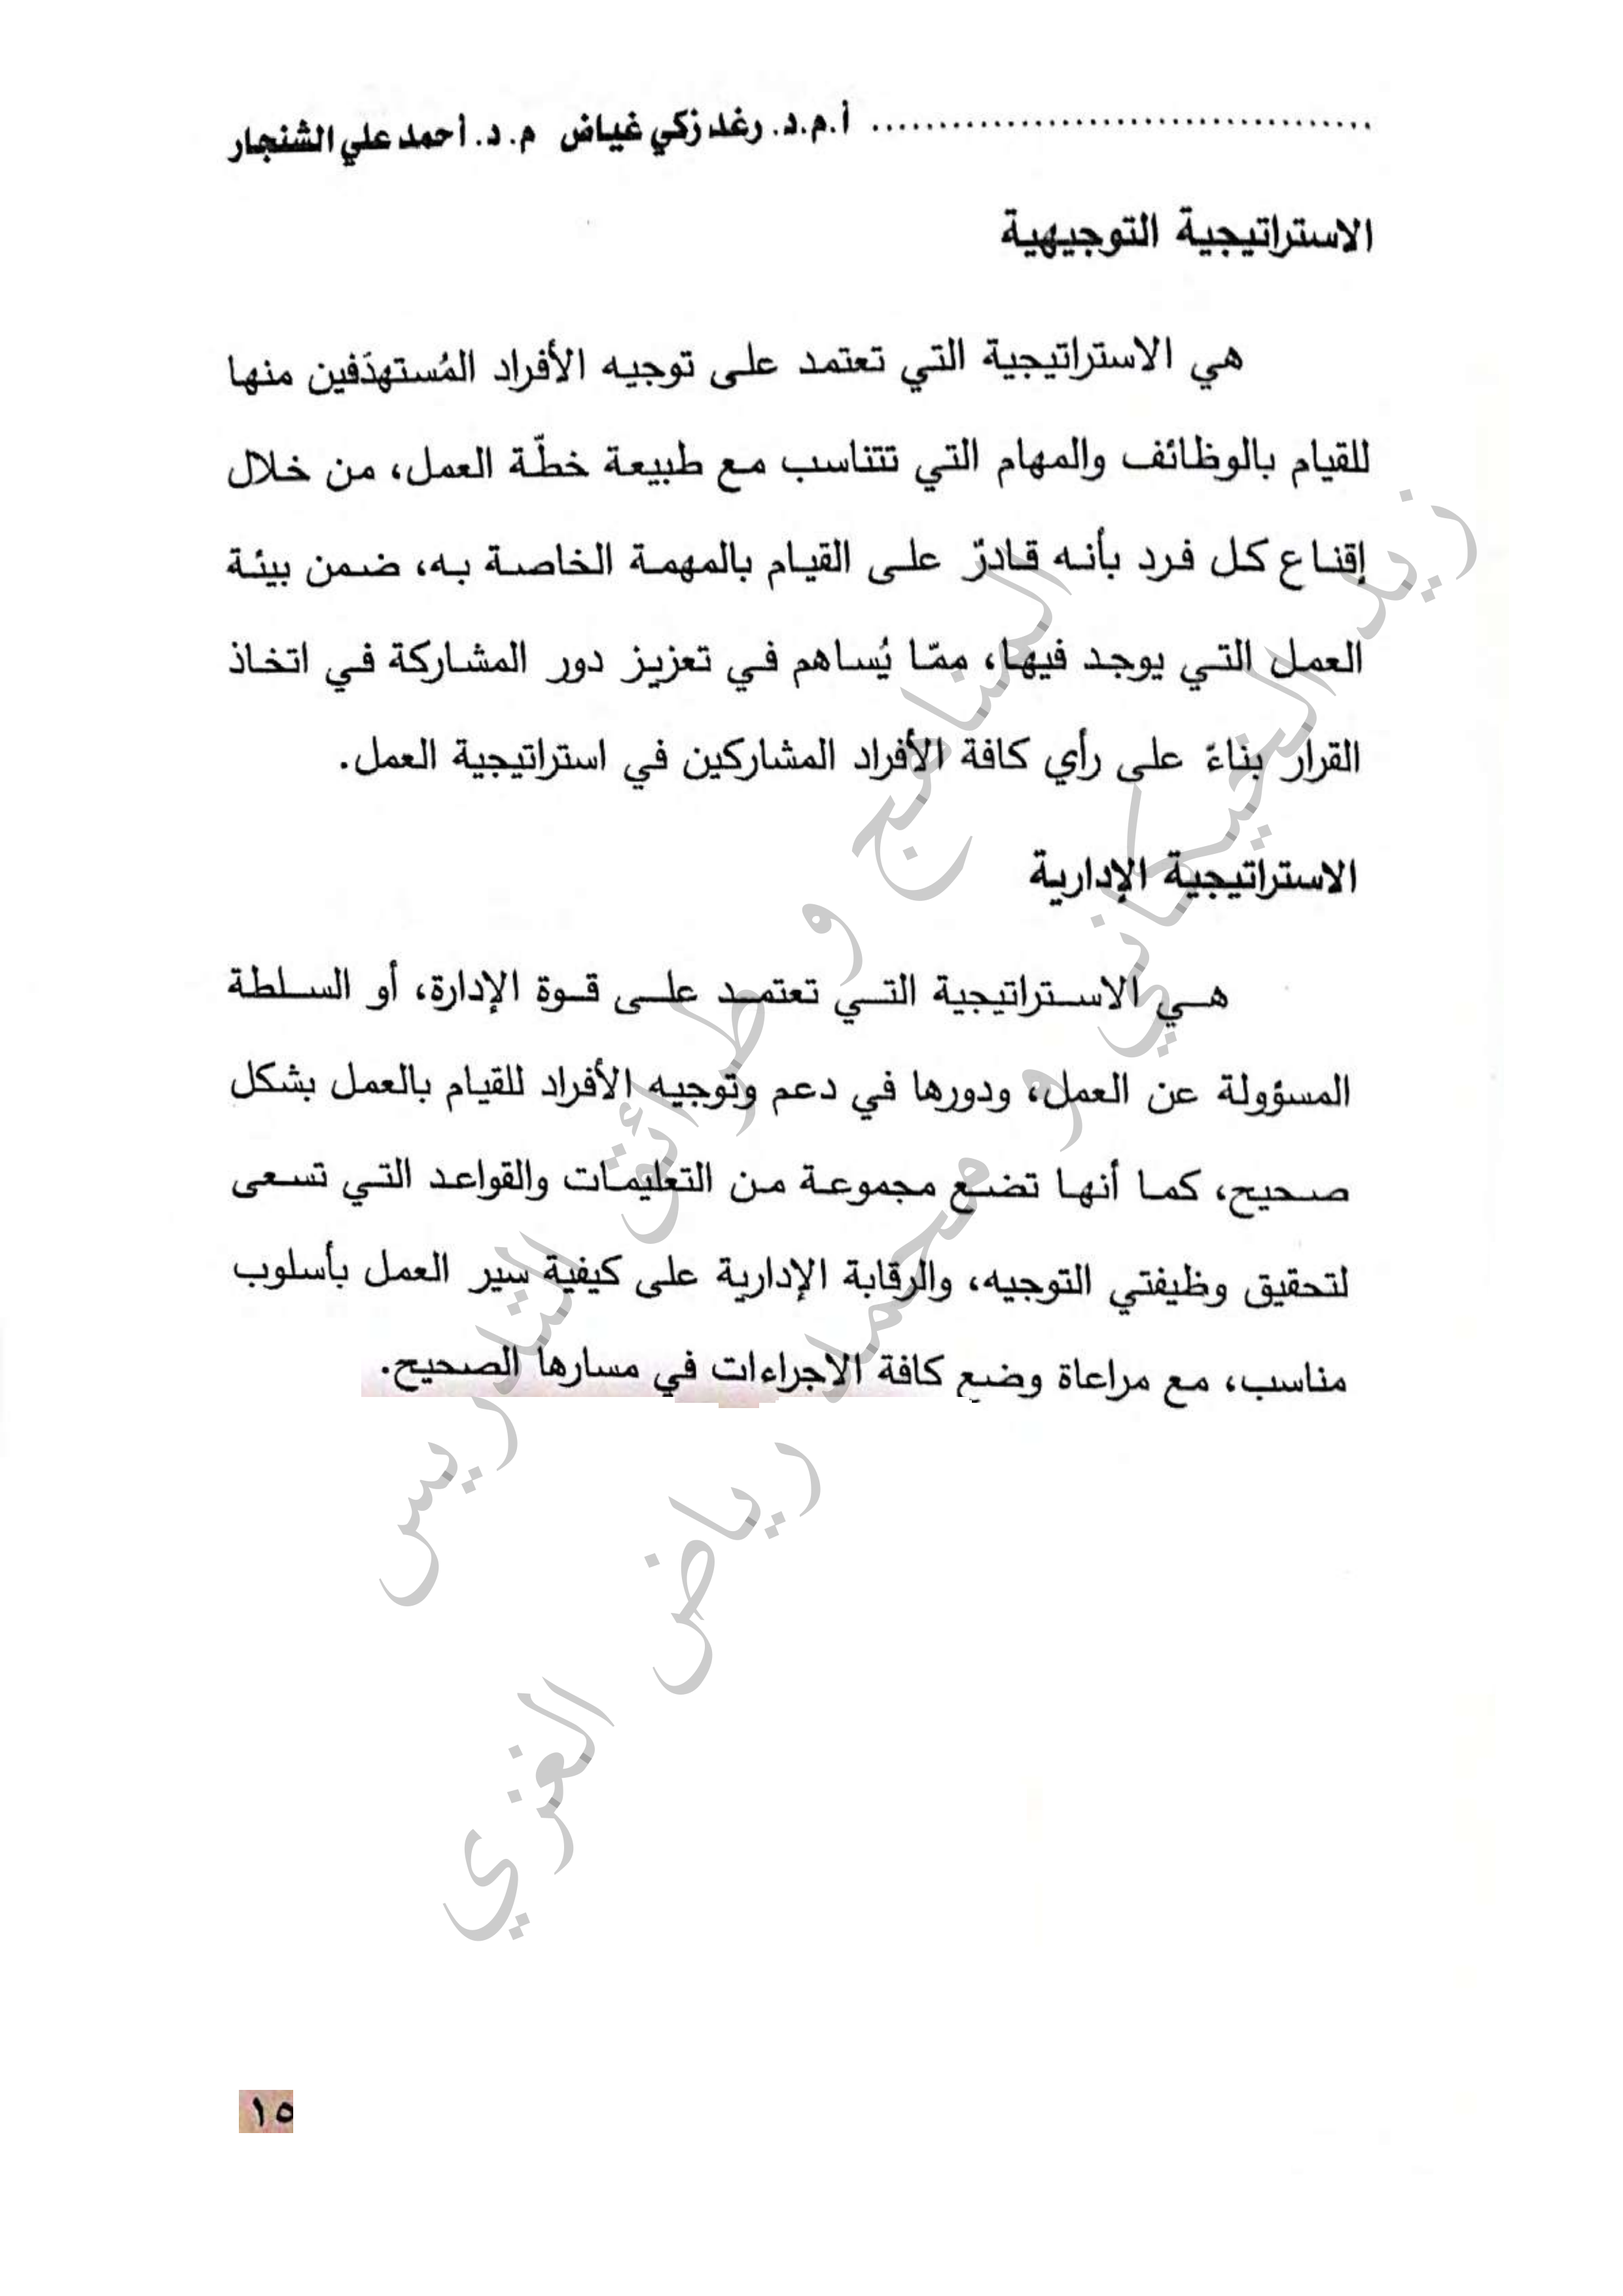 .................................... أ.م.د. رغد زكي غياض م.د. أحمد علي الشنجار
الاستراتيجية التوجيهية
هي الاستراتيجية التي تعتمد على توجيه الأفراد المُستهدَفين منها
للقيام بالوظائف والمهام التي تتناسب مع طبيعة خطّة العمل، من خلال
إقناع كل فرد بأنه قادرٌ على القيام بالمهمة الخاصة به، ضمن بيئة
العمل التي يوجد فيها، ممّا يُساهم في تعزيز دور المشاركة في اتخاذ
القرار بناءً على رأي كافة الأفراد المشاركين في استراتيجية العمل.
الاستراتيجية الإدارية
هي الاستراتيجية التي تعتمد على قوة الإدارة، أو السلطة
المسؤولة عن العمل، ودورها في دعم وتوجيه الأفراد للقيام بالعمل بشكل
صحيح، كما أنها تضع مجموعة من التعليمات والقواعد التي تسعى
لتحقيق وظيفتي التوجيه، والرقابة الإدارية على كيفية سير العمل بأسلوب
مناسب، مع مراعاة وضع كافة الاجراءات في مسارها الصحيح.
المناهج و طرائق التدريس
زيد الحيكاني و محمد رياض الغزي
١٥